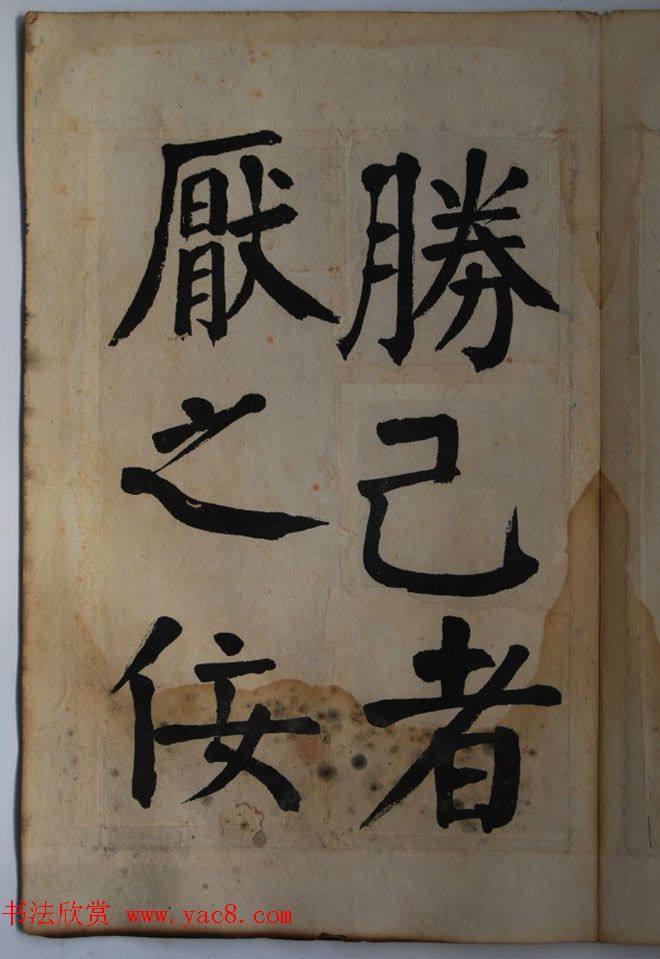 勝己者
厭之佞
书法欣赏 www.yac8.com